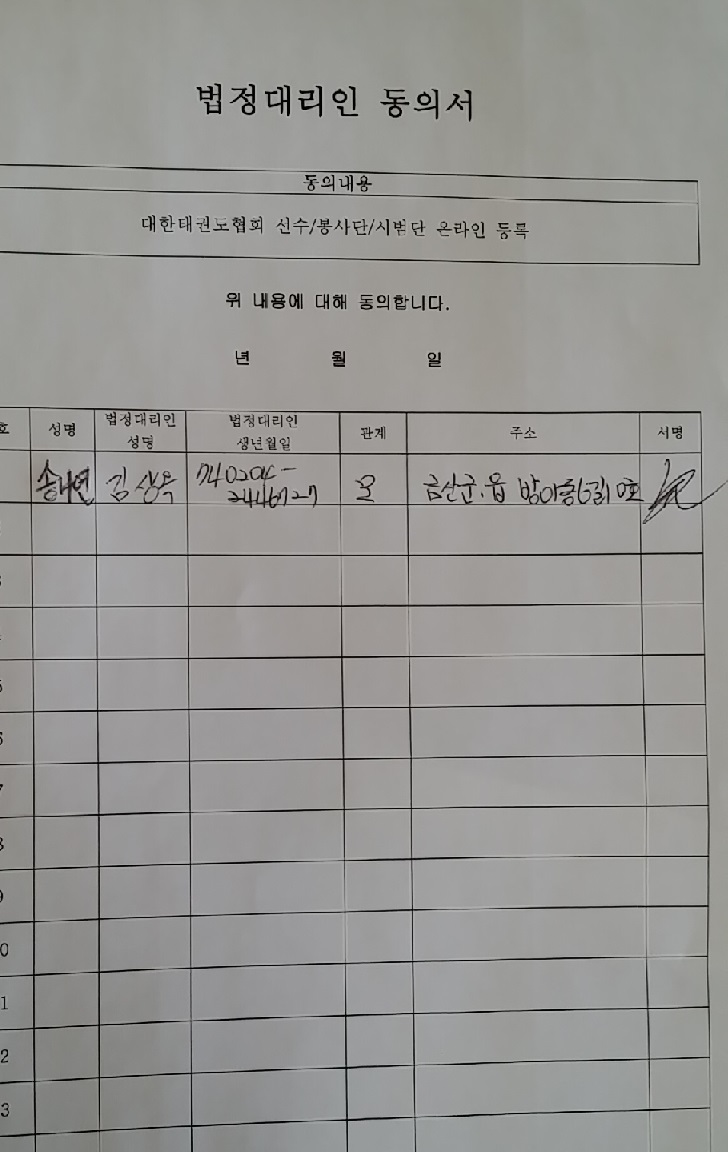 법정대리인 동의서
동의내용
대한태권도협회 선수/봉사단/시범단 온라인 등록
위 내용에 대해 동의합니다.
년 월 일
호 성명 법정대리인 성명 법정대리인 생년월일 관계 주소 서명
김상옥 모 금산군.읍
3
5
6
7
8
9
0
1
2
3